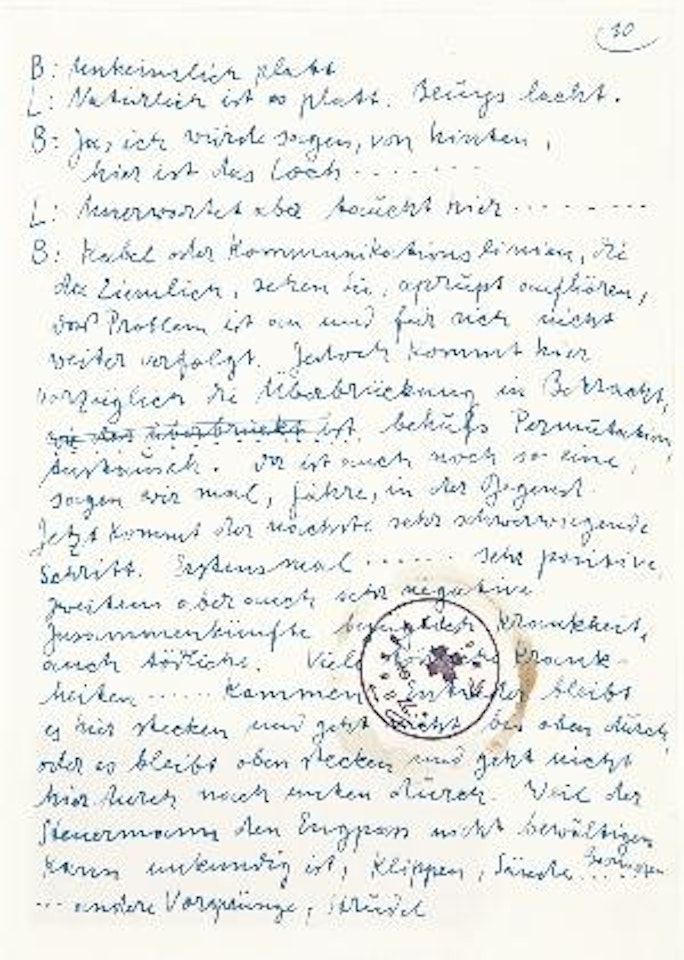 10
B: Unheimlich platt
L: Natürlich ist es platt. Beuys lacht.
B: Ja, ich würde sagen, von hinten,
hier ist das Loch .......
L: Unerwartet aber taucht hier ........
B: Kabel oder Kommunikationslinien, die
da ziemlich, sehen Sie, aprupt aufhören,
das Problem ist an und für sich nicht
weiter verfolgt. Jedoch kommt hier
vorzüglich die Überbrückung in Betracht,
wie das überbrückt ist behufs Permutation,
Austausch. Da ist auch noch so eine,
sagen wir mal, Fähre, in der Gegend.
Jetzt kommt der nächste sehr schwerwiegende
Schritt. Erstens mal ...... sehr positive,
zweitens aber auch sehr negative
Zusammenkünfte Krankheit,
auch tötliche. Viele Krank-
heiten ...... kommen Entweder bleibt
es hier stecken und geht nicht oben durch,
oder es bleibt oben stecken und geht nicht
hier durch nach unten durch. Weil der
Steuermann den Engpass nicht bewältigen
kann unkundig ist, Klippen, Sände ....
... andere Vorsprünge, Strudel